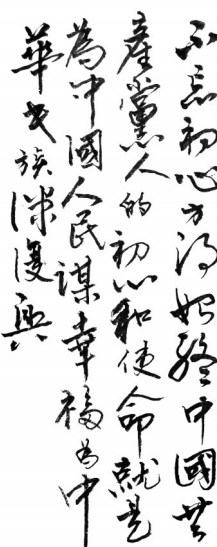 不忘初心方得始終中國共
產黨人的初心和使命就是
為中國人民謀幸福為中
華民族謀復興